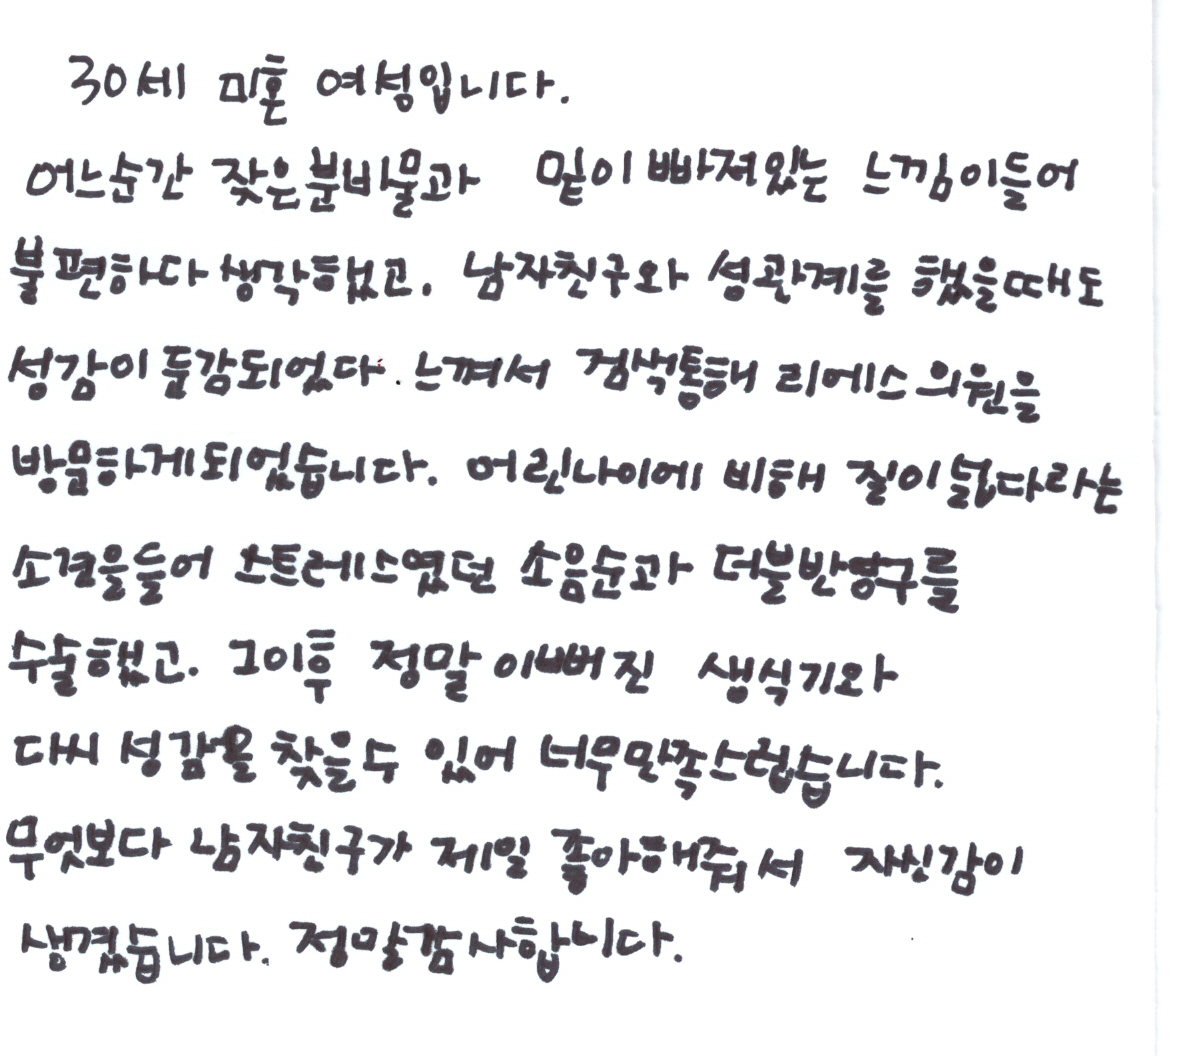 30세 미혼 여성입니다.
어느순간 잦은분비물과 밑이 빠져있는 느낌이들어
불편하다 생각했고. 남자친구와 성관계를 했을때도
성감이 둔감되었다. 느껴서 검색통해 리에스의원을
방문하게되었습니다. 어린나이에 비해 질이 넓다라는
소견을들어 스트레스였던 소음순과 더불반영구를
수술했고. 그이후 정말 이뻐진 생식기와
다시 성감을 찾을수 있어 너무만족스럽습니다.
무엇보다 남자친구가 제일 좋아해줘서 자신감이
생겼습니다. 정말감사합니다.